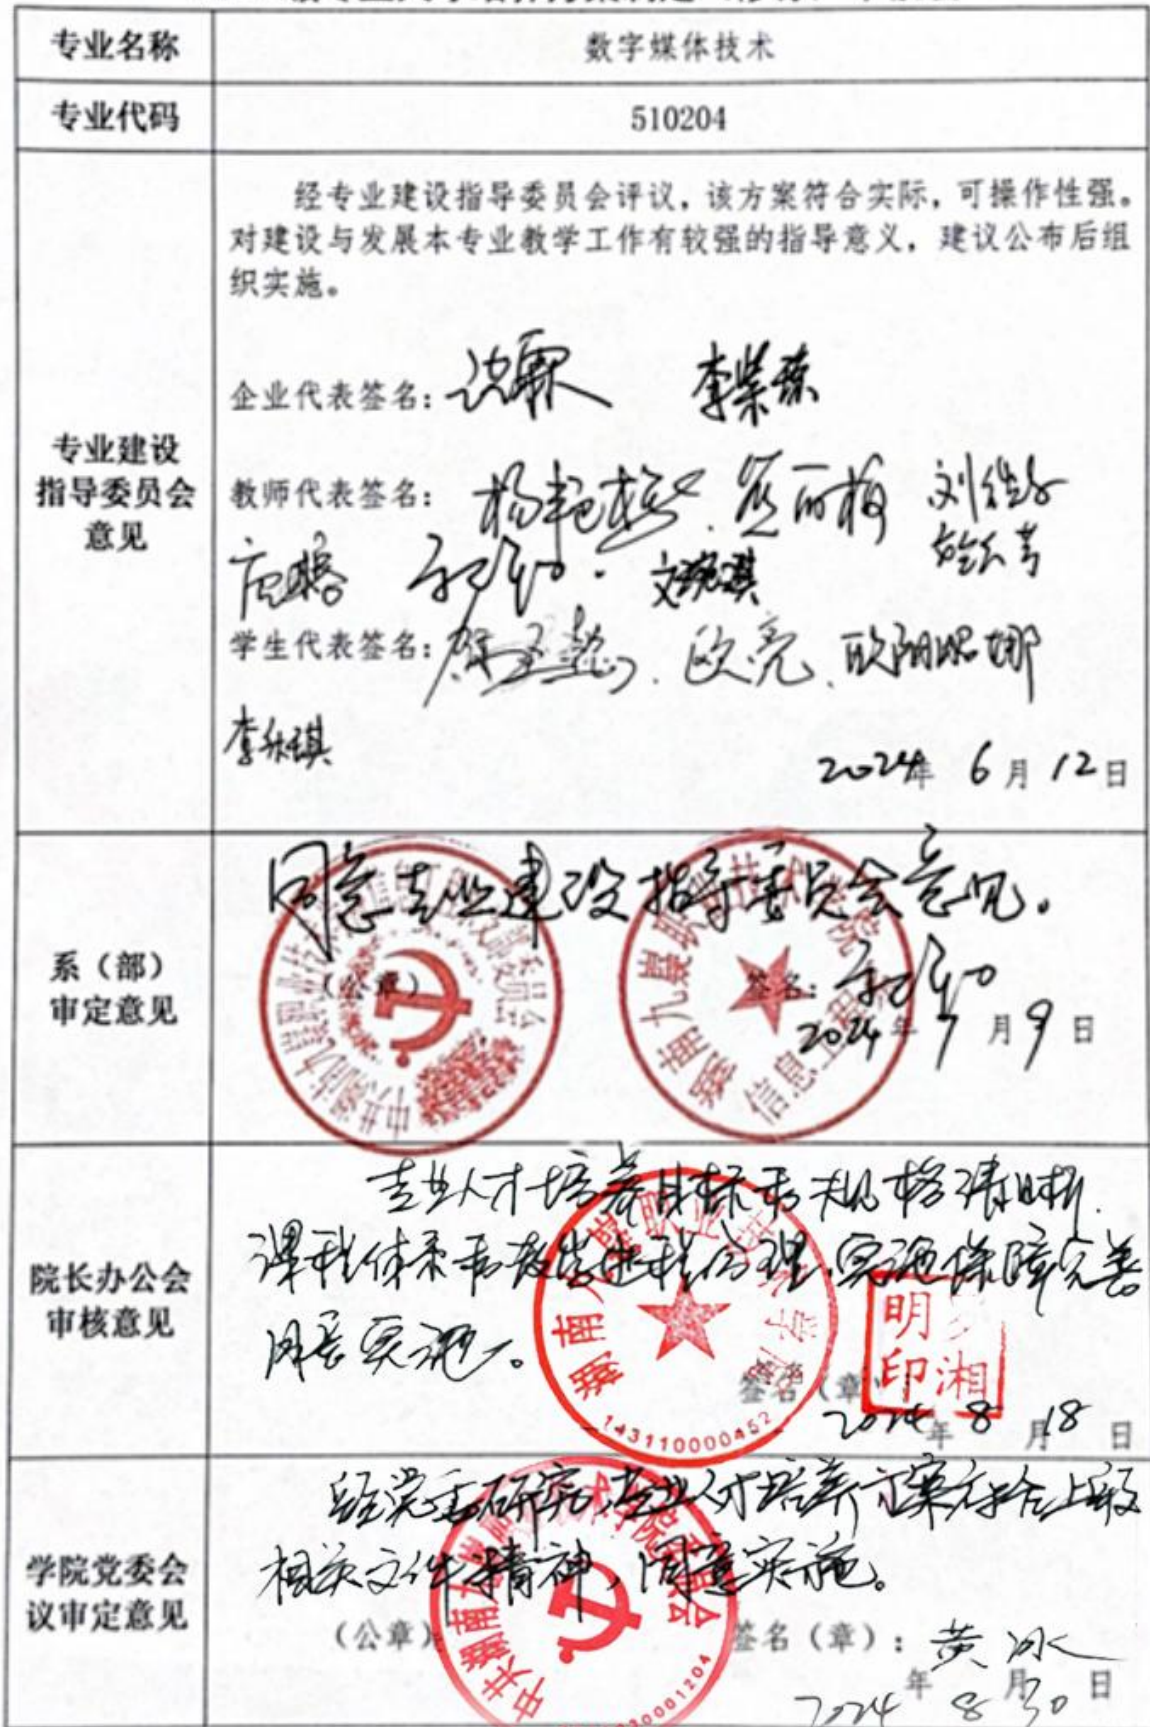 专业名称
数字媒体技术
专业代码
510204
专业建设
指导委员会
意见
经专业建设指导委员会评议，该方案符合实际，可操作性强。
对建设与发展本专业教学工作有较强的指导意义，建议公布后组
织实施。
企业代表签名：
教师代表签名：
学生代表签名： 欧亮
2024年 6月 12日
系（部）
审定意见
同意专业建设指导委员会意见。
（公章）
签名：
2024年 月9日
信息工程
院长办公会
审核意见
专业人才培养目标和规格清晰，
课程体系和教学进程合理，实施保障完善
同意实施。
签名（章）
明
印湘
2024年 8月 18日
1431100004 52
学院党委会
议审定意见
经党委研究，专业人才培养方案符合上级
相关文件精神，同意实施。
（公章）
签名（章）：黄冰
2024年 8月30日